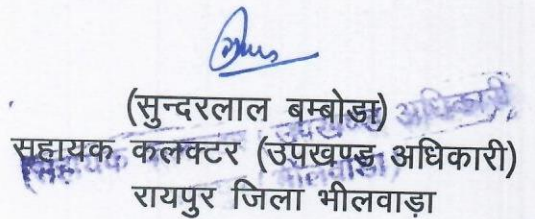 (सुन्दरलाल बम्बोडा)
सहायक कलक्टर (उपखण्ड अधिकारी)
रायपुर जिला भीलवाड़ा